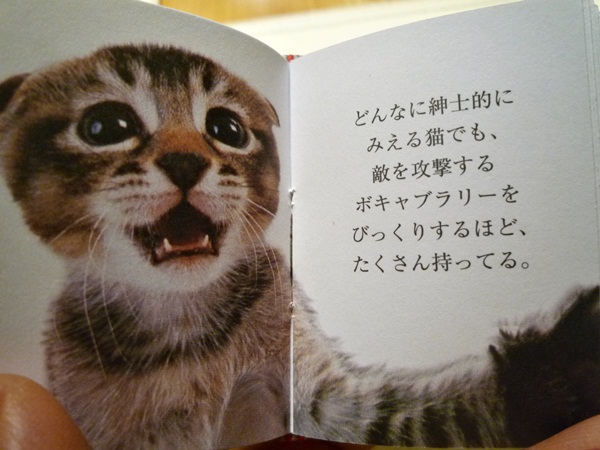 どんなに紳士的に
みえる猫でも、
敵を攻撃する
ボキャブラリーを
びっくりするほど、
たくさん持ってる。